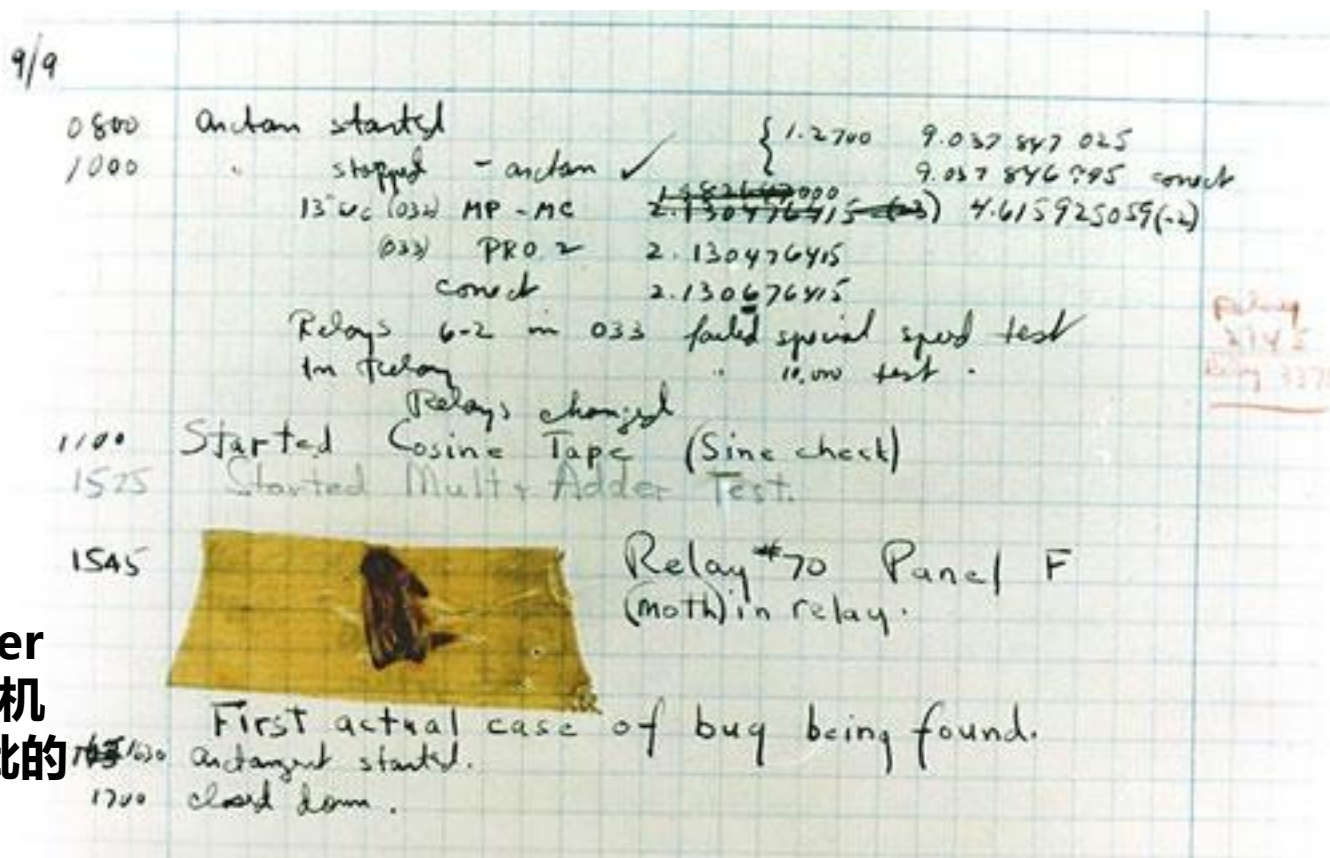 9/9
0800 arctan started { 1.2700 9.037 847 025
1000 " stopped - arctan ✓ 9.037 846 795 conect
13"uc (032) MP - MC 2.130476415 (-3) 4.615925059(-2)
(033) PRO 2 2.130476415
conect 2.130676415
Relays 6-2 in 033 failed special speed test
In Relay " 10,000 test.
Relays changed
Relay
2145
Relay 337
1100 Started Cosine Tape (Sine check)
1525 Started Mult + Adder Test.
1545 Relay #70 Panel F
(moth) in relay.
First actual case of bug being found.
1630 arctangent started.
1700 closed down.
er
机
的